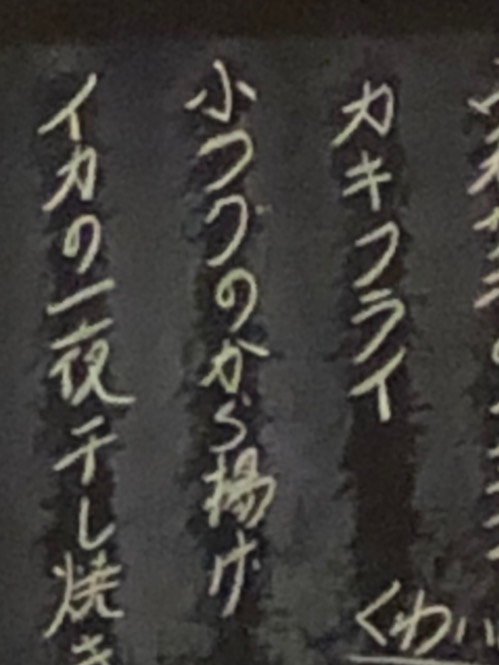 カキフライ
くわい
小フグのから揚げ
イカの一夜干し焼き